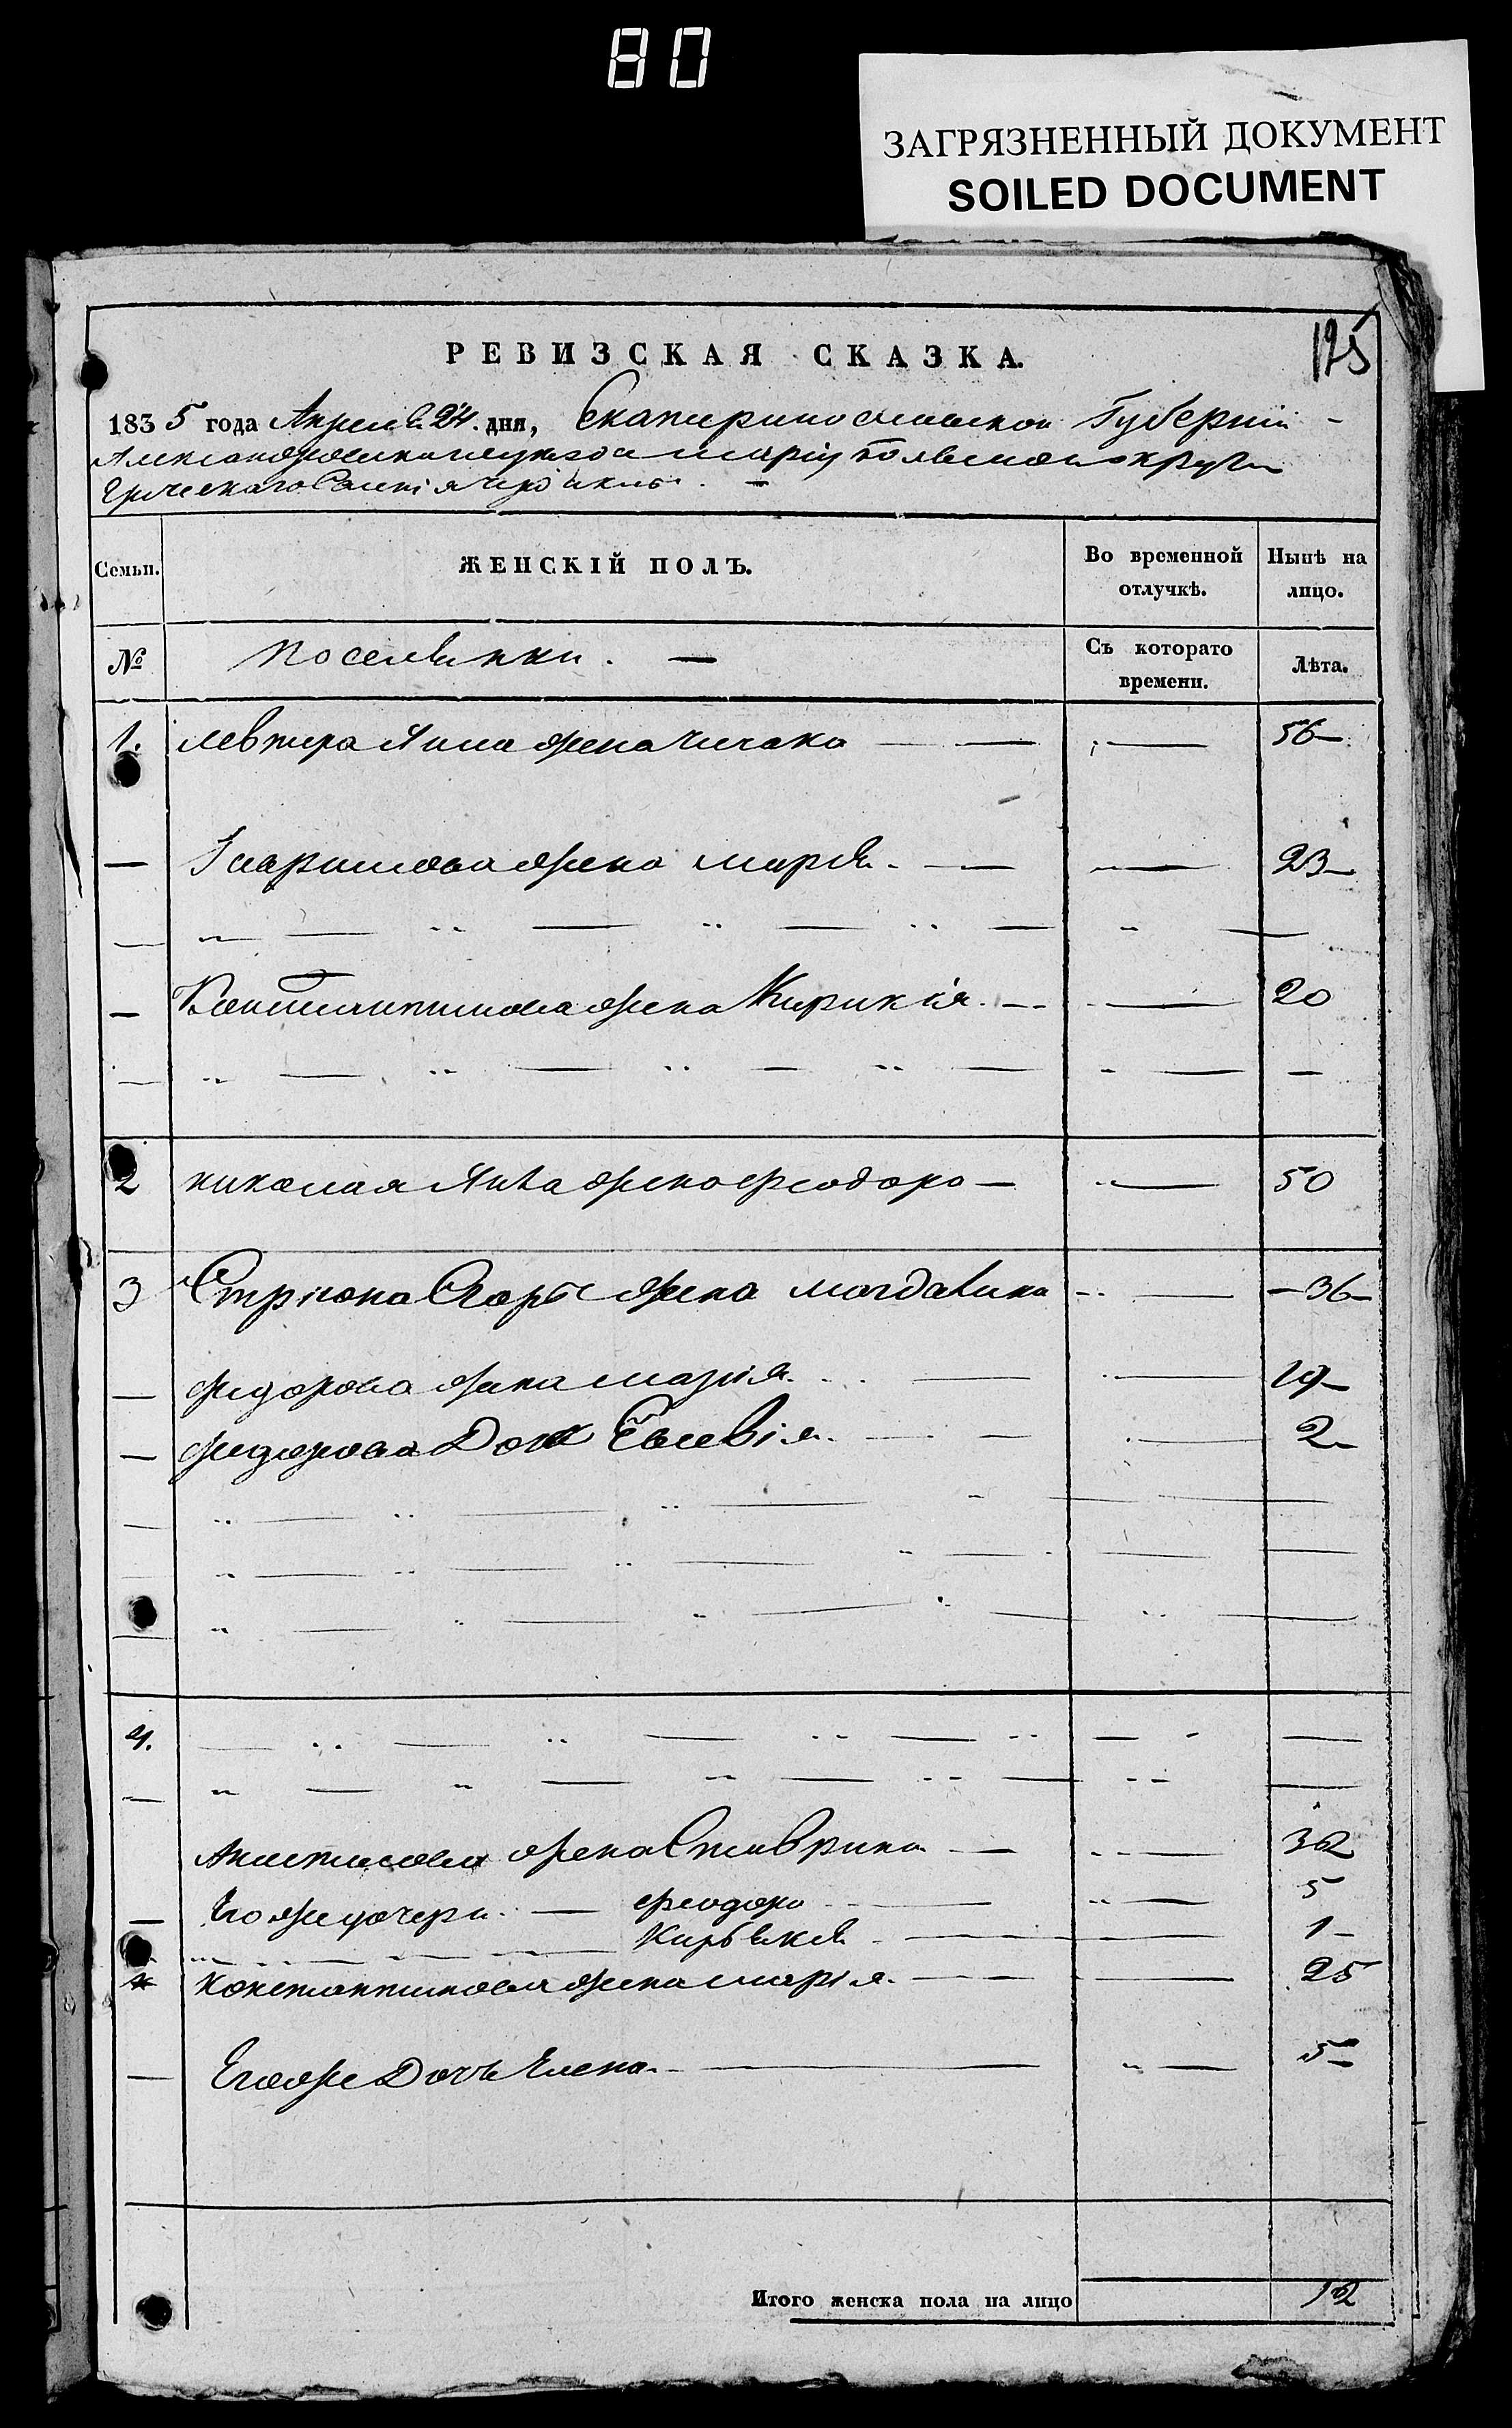 80
ЗАГРЯЗНЕННЫЙ ДОКУМЕНТ
SOILED DOCUMENT
125
РЕВИЗСКАЯ СКАЗКА.
1835 года Апреля 24. дня, Екатеринославской Губернии
Александровского уезда мариупольского округа
Греческаго Селения
Семьи. ЖЕНСКІЙ ПОЛЪ. Во временной отлучкѣ. Нынѣ на лицо.
№ поселянки. Съ которато времени. Лѣта.
1. Левтера жена 56
жена мария 23
Константинова жена Кирикія 20
2 николая Янва жена феодора 50
3 жена магдалина 36
федорова жена марія 19
федорова Доч 2
4.
жена Ставрина 32
Его же дочери феодора 5
1
константинова жена марія 25
Его же Дочь Елена 5
Итого женска пола на лицо 12